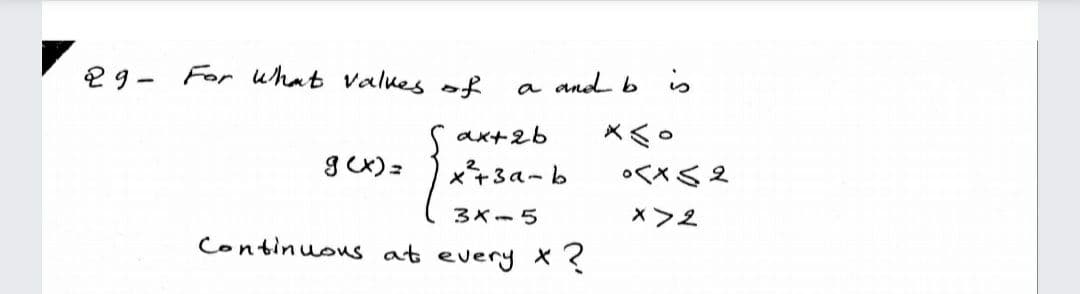 29- For what values of a and b is
ax+2b x≤0
g(x)= x²+3a-b 0<x≤2
3x-5 x>2
Continuous at every x?